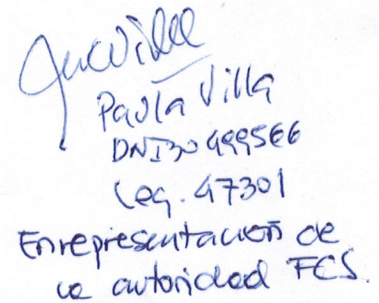 Paola Villa
DNI 30499566
Leg. 47301
En representación de
la autoridad FCS.